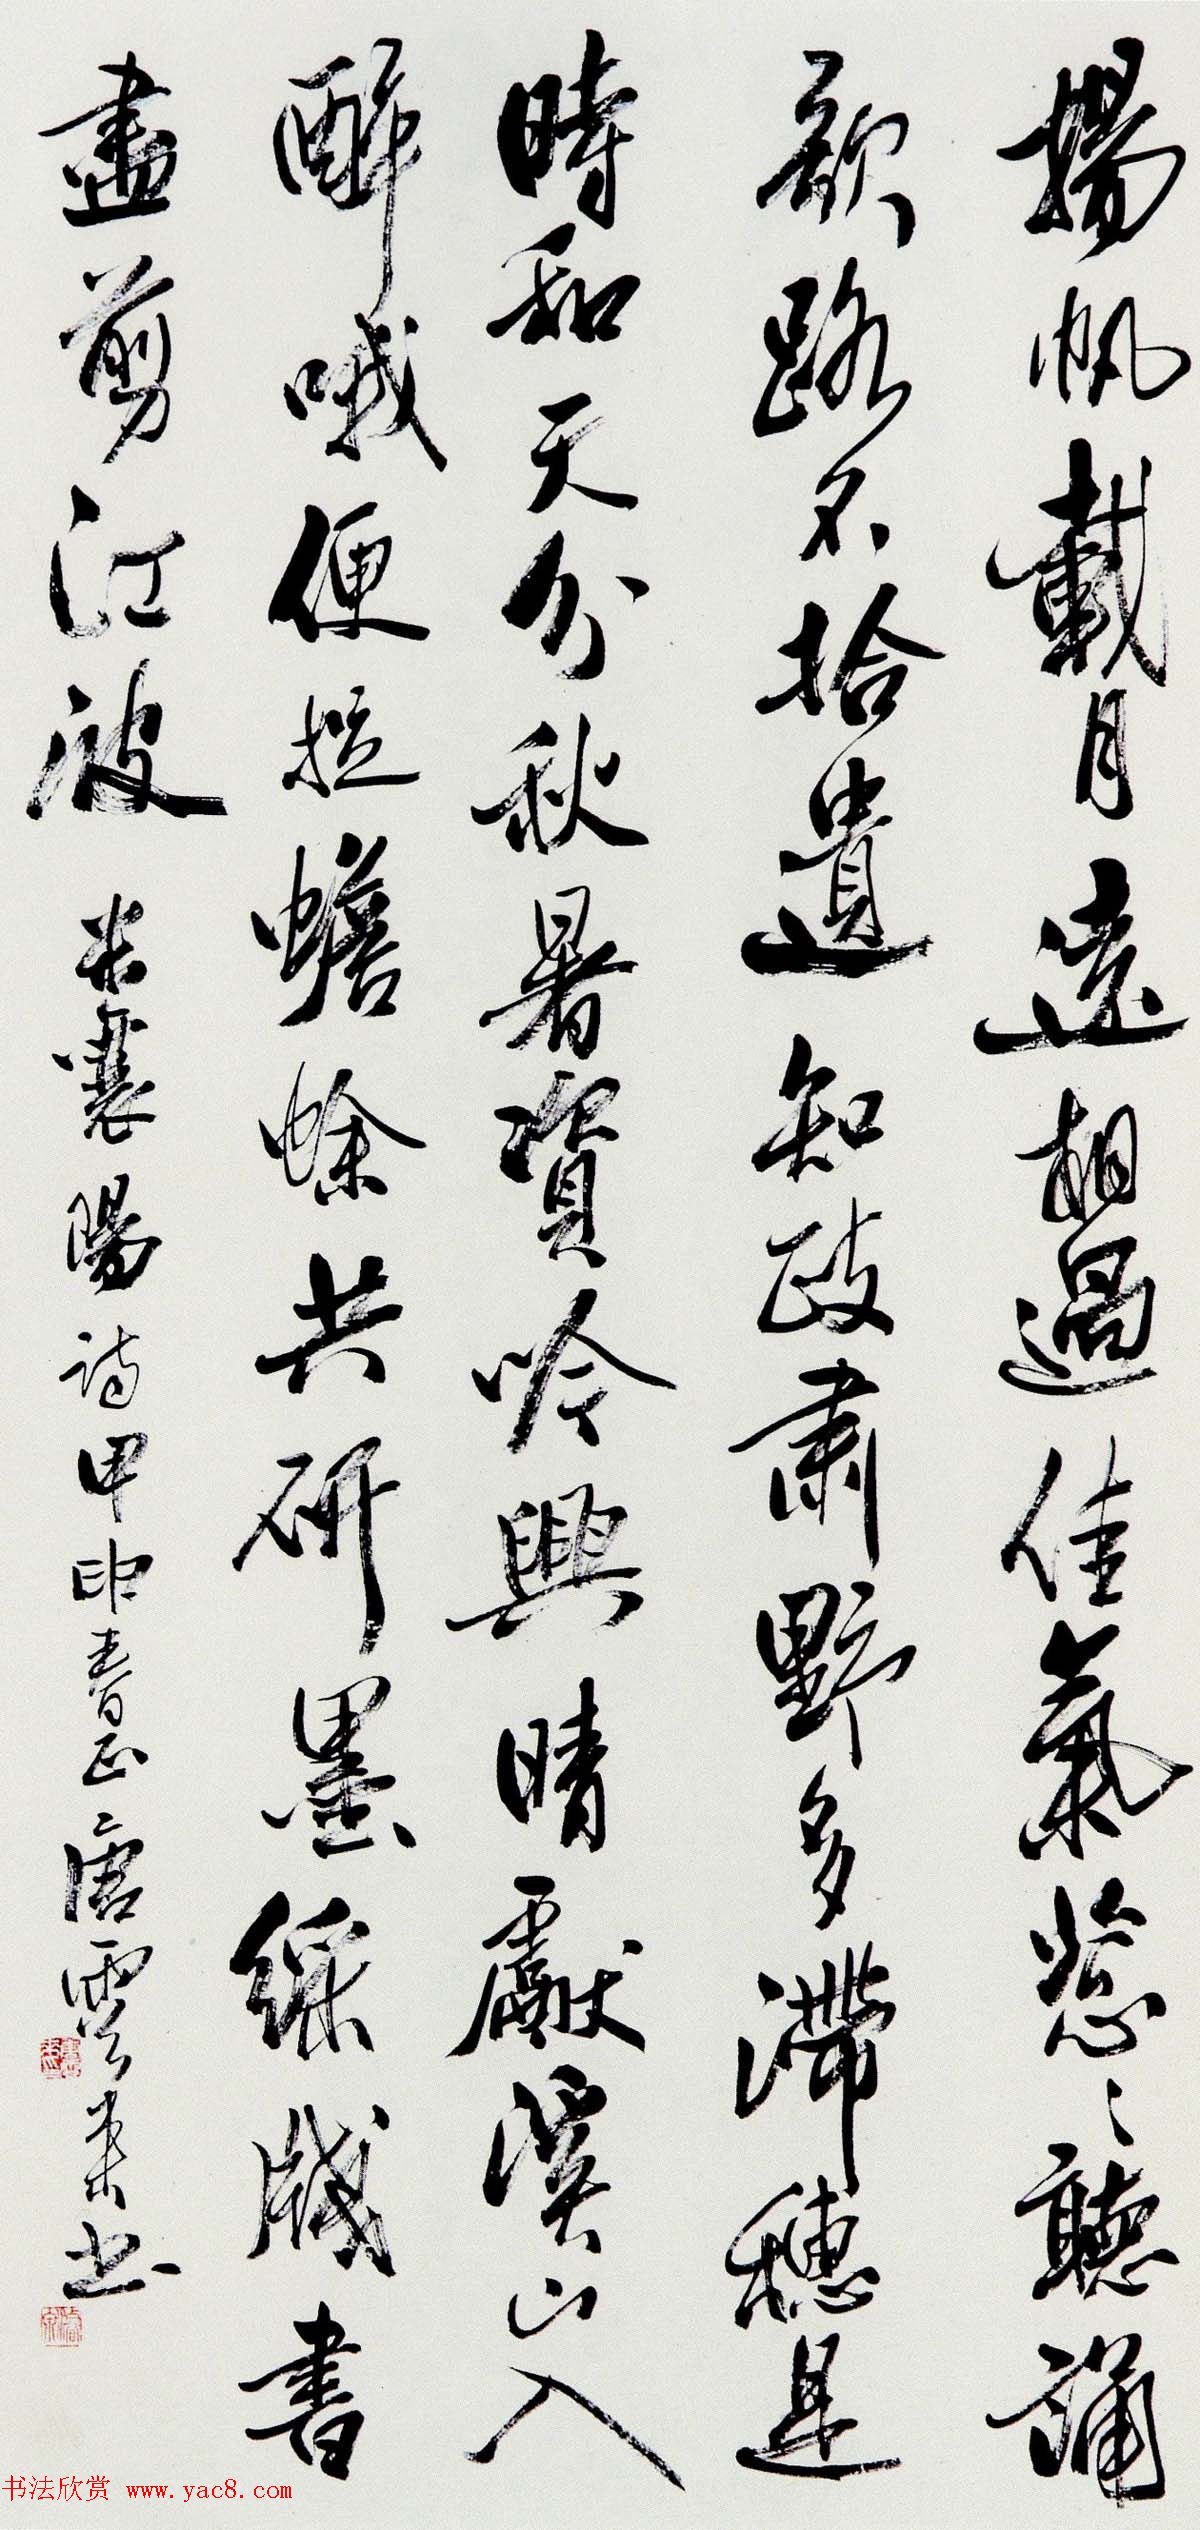 揚帆載月遠相過佳氣葱〻聽誦
歌路不拾遺知政肅野多滯穗是
時和天分秋暑資吟興晴獻溪山入
醉哦便捉蟾蜍共研墨綵牋書
盡剪江波
米襄陽詩甲申春正唐雲來書
书法欣赏 www.yac8.com